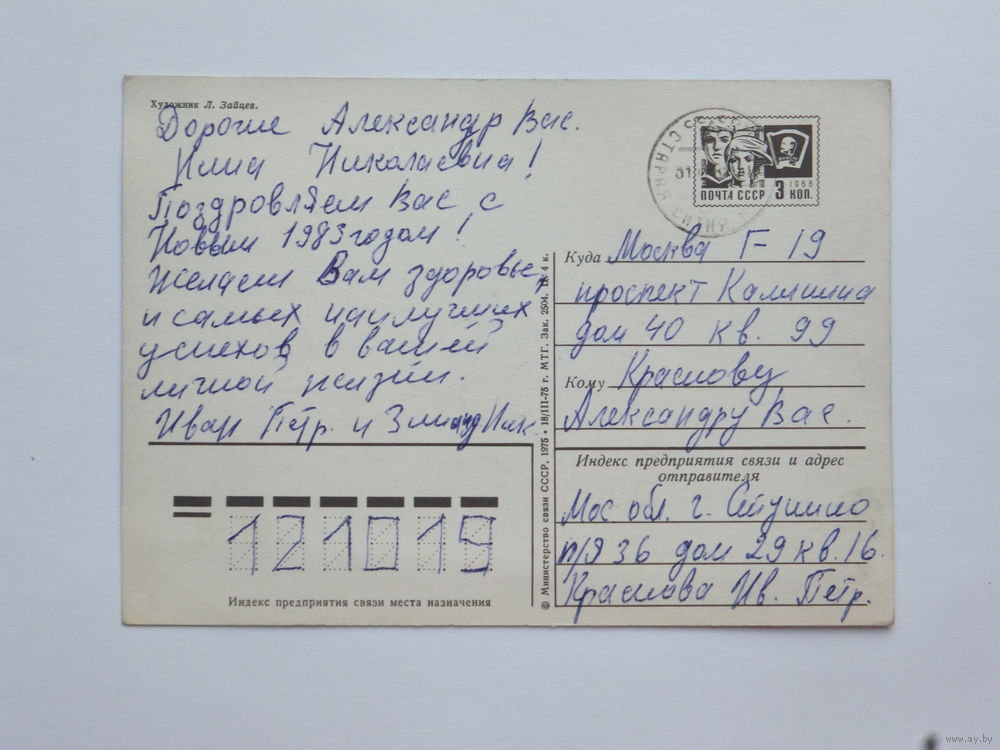 Художник Л. Зайцев.
Дорогие Александр Вас.
Николаевна!
Поздровляем Вас с
Новым 1983 годом!
Желаем Вам здоровье,
и самых наилучших
успехов в вашей
личной жизни.
Иван Петр. и Ник.
ПОЧТА СССР 3 КОП.
1966
Куда Москва Г-19
проспект Калинина
дом 40 кв. 99
Кому Краснову
Александру Вас.
Индекс предприятия связи и адрес
отправителя
Мос обл. г. Ступино
п/я 36 дом 29 кв. 16.
Краснова Ив. Петр.
121019
Индекс предприятия связи места назначения
© Министерство связи СССР, 1975 • 18/III-75 г. МТГ. Зак. 2504. Ц. 4 к.
www.ay.by